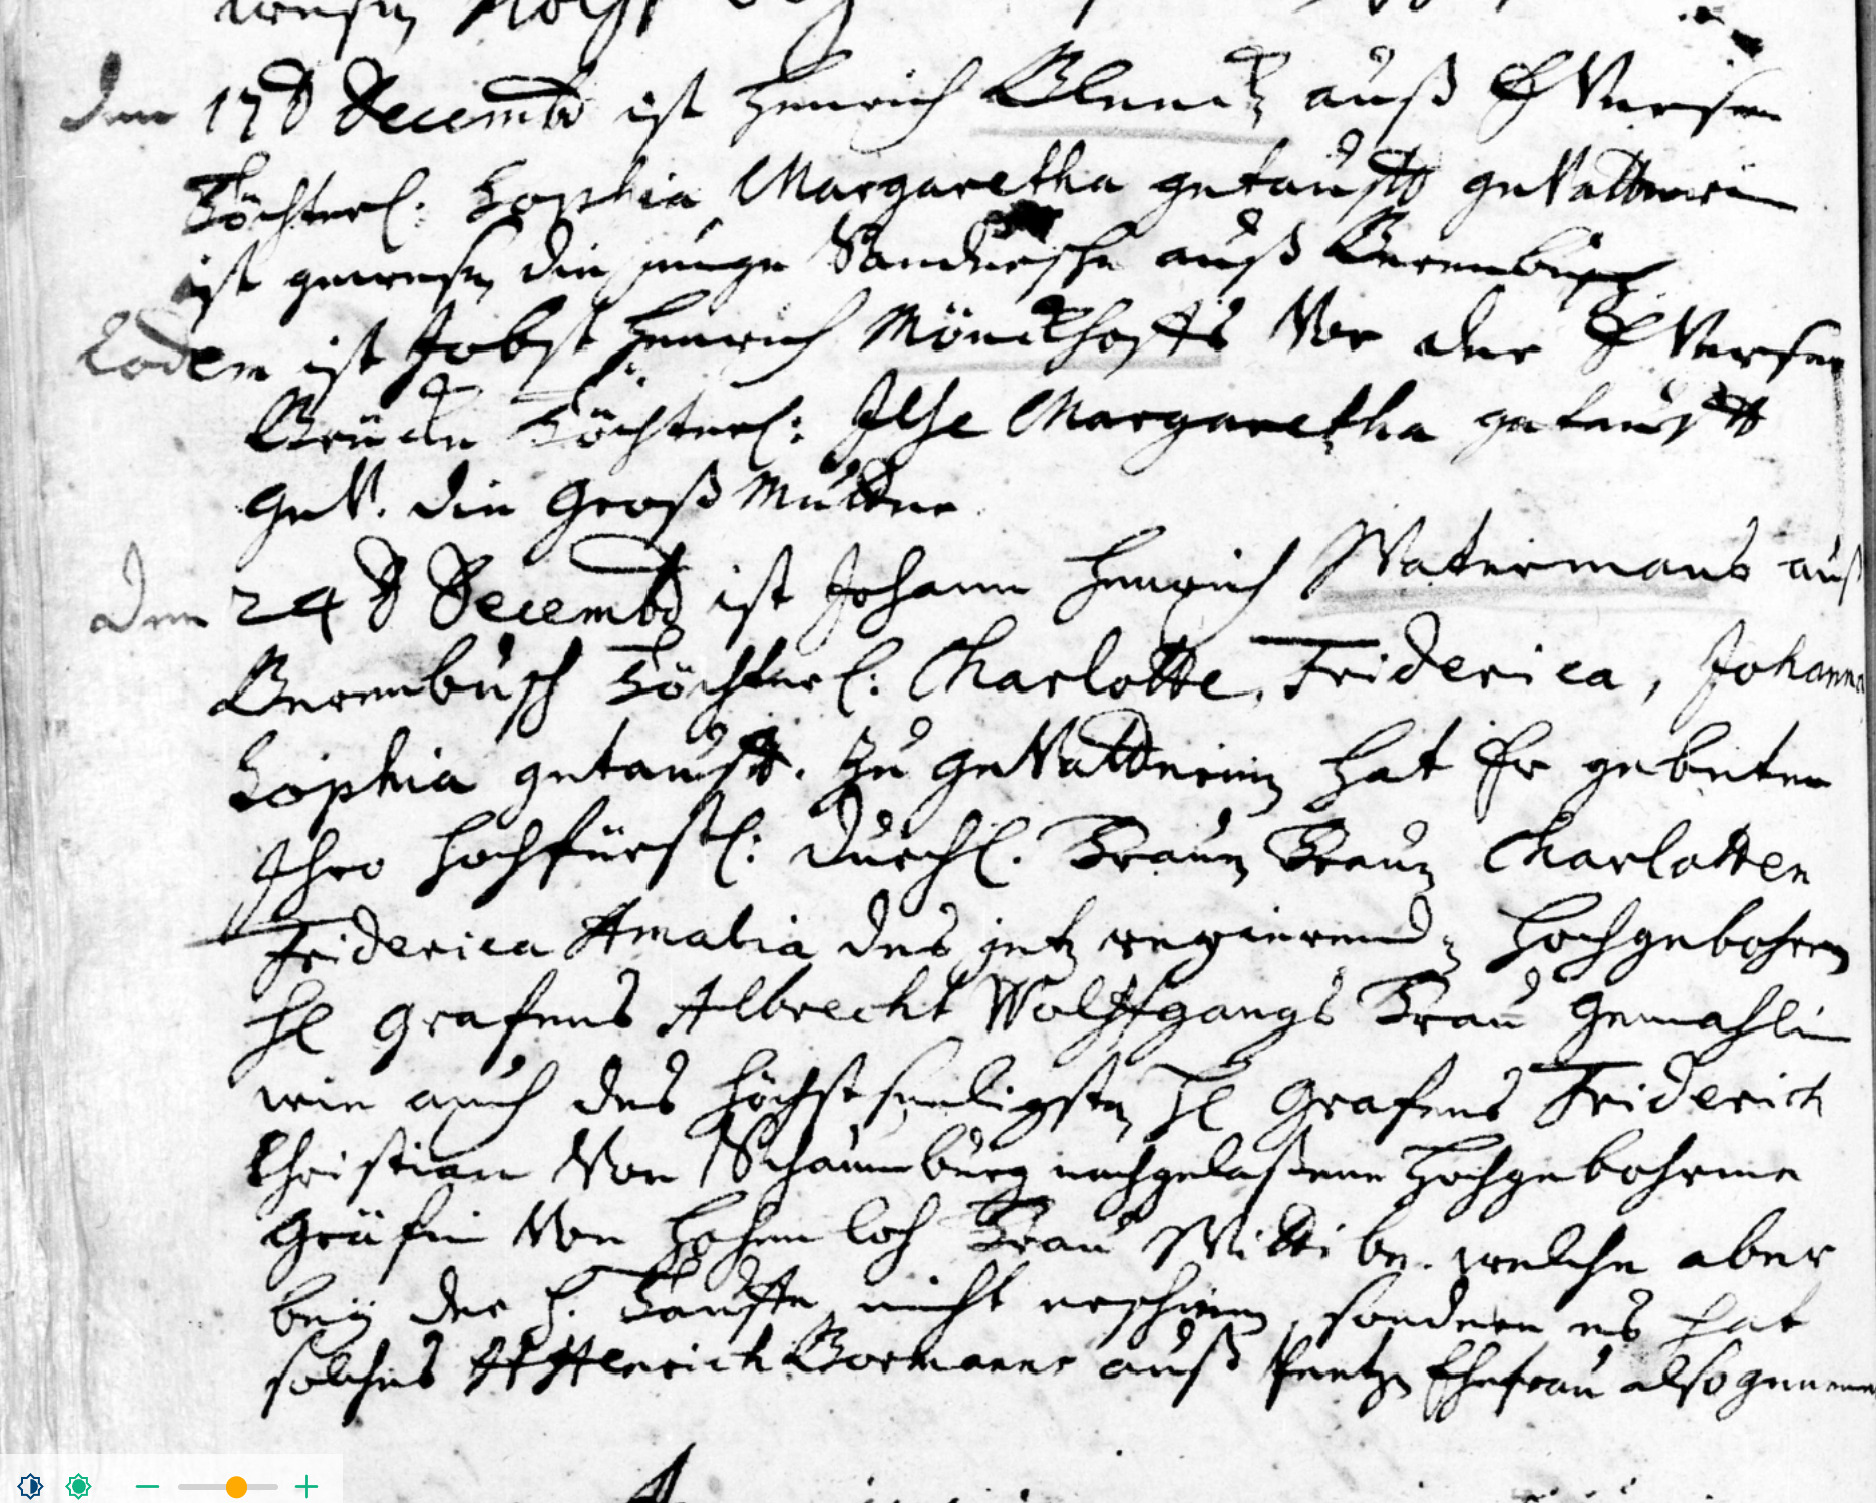 den 17 t Decembr ist Henrich Blencke auß Eversen
Töchterl: Sophia Margaretha getaufft gevatterin
ist gewesen die junge Sandersche auß Berenbusch
Eodem ist Jobst Henrich Mönckhoffs Vor der Eversen
Brücke Töchterl: Ilse Margaretha getaufft
gev. die GroßMutter
den 24 t Decembr ist Johann Henrich Watermans auß
Berenbusch Töchterl: Charlotte, Friderica, Johanna
Sophia getaufft. Zu gevatterinn hat Er gebeten
Ihro Hochfürstl: Durchl. Fraun Fraun Charlotten
Friderica Amalia des jetz regierenden Hochgebohren
H Grafens Albrecht Wolffgangs Frau Gemahlin
wie auch des Höchstseeligsten H Grafens Friderich
Christian Von Schaumburg nachgelaßene Hochgebohrne
Gräfin Von Hohenloh Frau Wittibe. welche aber
bey der H. Tauffe nicht erschienen, sondern es hat
solches Henrich Bormanns auß Peetzen Ehefrau also